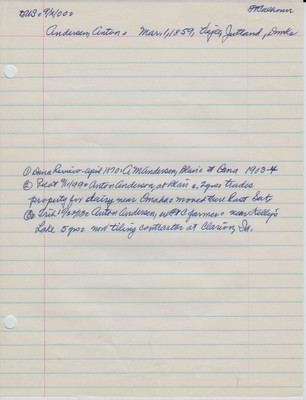 Ft Calhoun
Andersen, Anton. Mar. 1, 1859, Jutland,
① Dana Review April 1970: A M Andersen, Blair & Dana 1903-4
② Pilot 9/1/99: Anton Anderson, at Blair 2 yrs trades
property for dairy near Omaha & moved there last Sat.
③ Trib 1900: Anton Andersen, farmer near Kelly's
Lake 5 yrs now tiling contractor at Clarion, Ia.